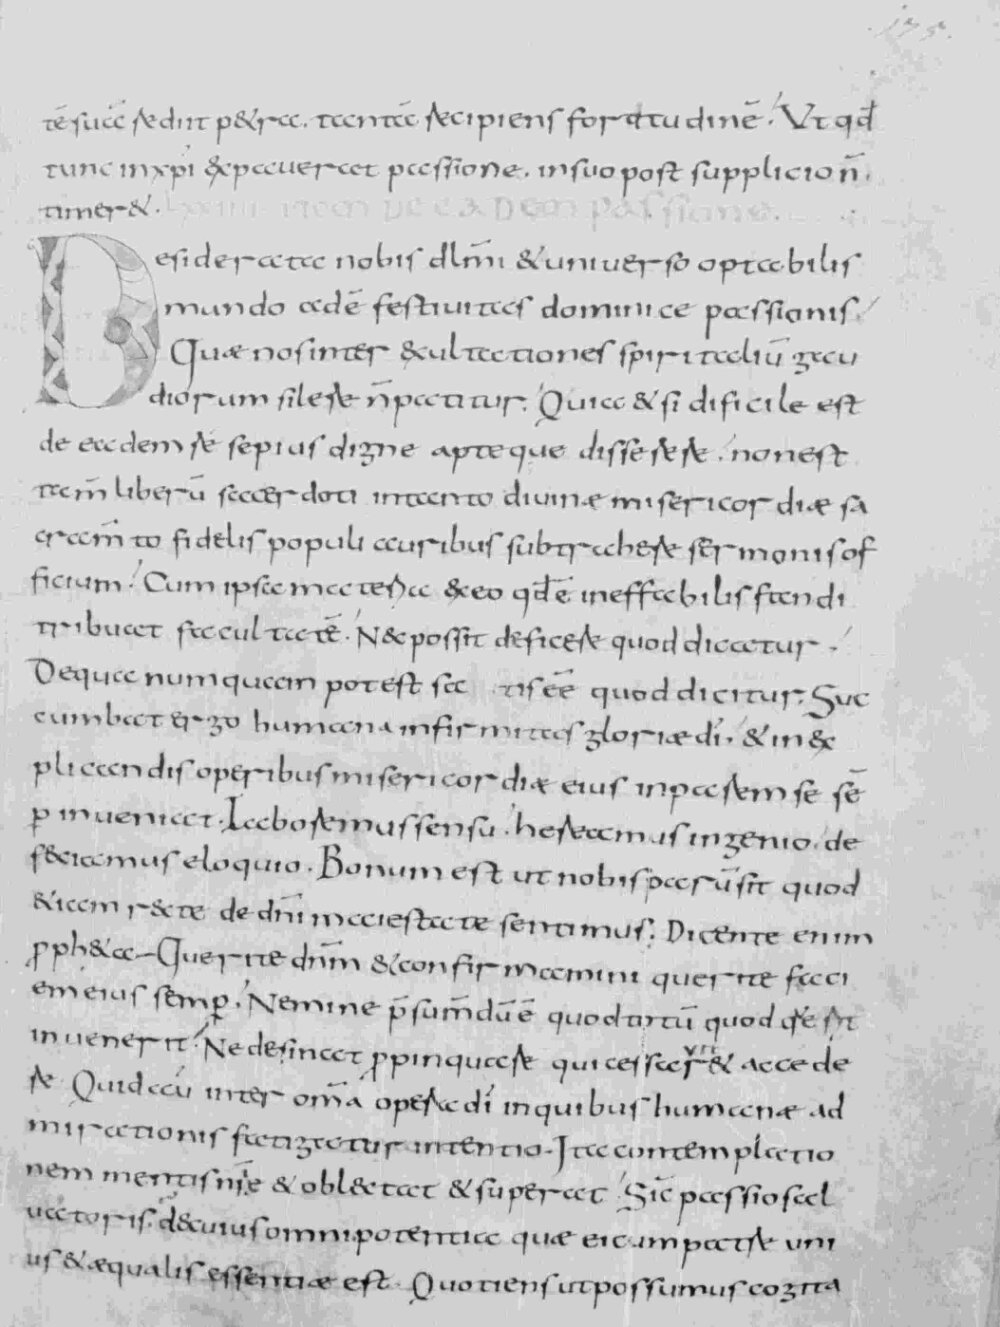 .175.
tē sucā sedit petra. tantā recipiens fortitudinē. Ut qđ
tunc in xpi expauerat passione. in suo post supplicio ñ
timeret. LXIIII. ITEM DE EADEM PASSIONE.
Desiderata nobis dłmi & uniuerso optabilis
mundo adē festiuitas dominice passionis.
Quæ nos inter exultationes spiritaliū gau
diorum silere ñ patitur. Quia & si dificile est
de eadem re sepius digne apteque disserere. non est
tam̄ liberū sacerdoti intento diuinæ misericordiæ sa
cram̄to fidelis populi auribus subtrahere sermonis of
ficium. Cum ipsa materia ex eo qđ ē ineffabilis fandi
tribuat facultatē. Nec possit deficere quod dicatur.
Dequa numquam potest sa tis eē quod dicitur. Suc
cumbat ergo humana infirmitas gloriæ dī. & in ex
plicandis operibus misericordiæ eius inparem se sē
p inueniat. Laboremus sensu. hereamus ingenio. de
ficiamus eloquio. Bonum est ut nobis parū sit quod
etiam recte de dn̄i maiestate sentimus. Dicente enim
ppheta Querite dn̄m & confirmamini querite faci
em eius semp. Nemine p̄sum̄dū ē quod totū quod querit
inuenerit. Ne desinat ppinquare qui cessauerit accede
re Quid aū inter om̄a opera dī in quibus humanæ ad
mirationis fatigatur intentio. Ita contemplatio
nem mentis nr̄e & oblectat & superat Sic passio sal
uatoris. de cuius omnipotentia quæ ei cum patre uni
us & æqualis essentiæ est. Quotiens ut possumus cogita